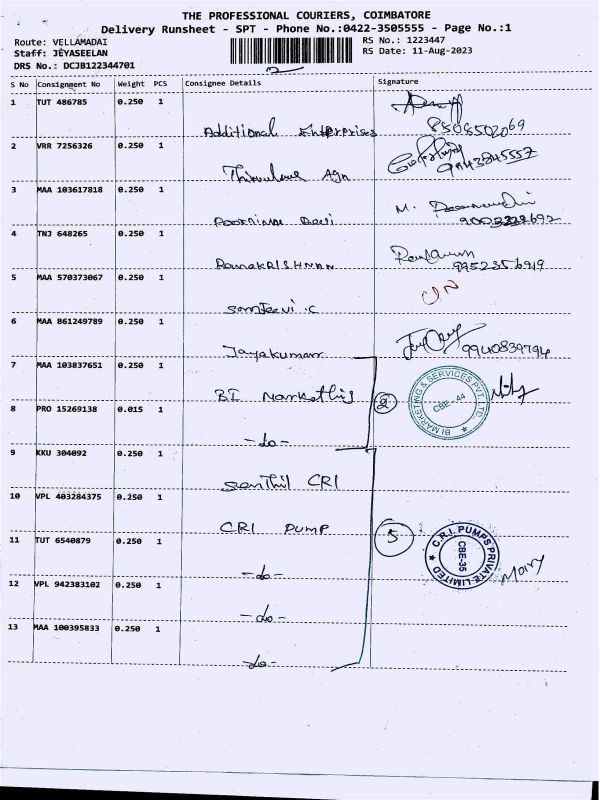 THE PROFESSIONAL COURIERS, COIMBATORE
Delivery Runsheet - SPT - Phone No.:0422-3505555 - Page No.:1
Route: VELLAMADAI
RS No.: 1223447
Staff: JEYASEELAN
RS Date: 11-Aug-2023
DRS No.: DCJB122344701
S No Consignment No Weight PCS Consignee Details Signature
1 TUT 486785 0.250 1
Additional Enterprises 8508502069
2 VRR 7256326 0.250 1
Agn 9943845557
3 MAA 103617818 0.250 1
Poornima Devi M.
4 TNJ 648265 0.250 1
RamaKRISHNAN 9952356919
5 MAA 570373067 0.250 1
Sanjeevi .C
6 MAA 861249789 0.250 1
Jayakumar 9940839794
7 MAA 103837651 0.250 1
BI Marketting 2 BI MARKETING & SERVICES PVT. LTD CBE - 44
8 PRO 15269138 0.015 1
-do-
9 KKU 304092 0.250 1
Senthil CRI
10 VPL 403284375 0.250 1
CRI PUMP 5 C.R.I. PUMPS PRIVATE LIMITED CBE-35
11 TUT 6540879 0.250 1
-do- Mary
12 VPL 942383102 0.250 1
-do-
13 MAA 100395833 0.250 1
-do-